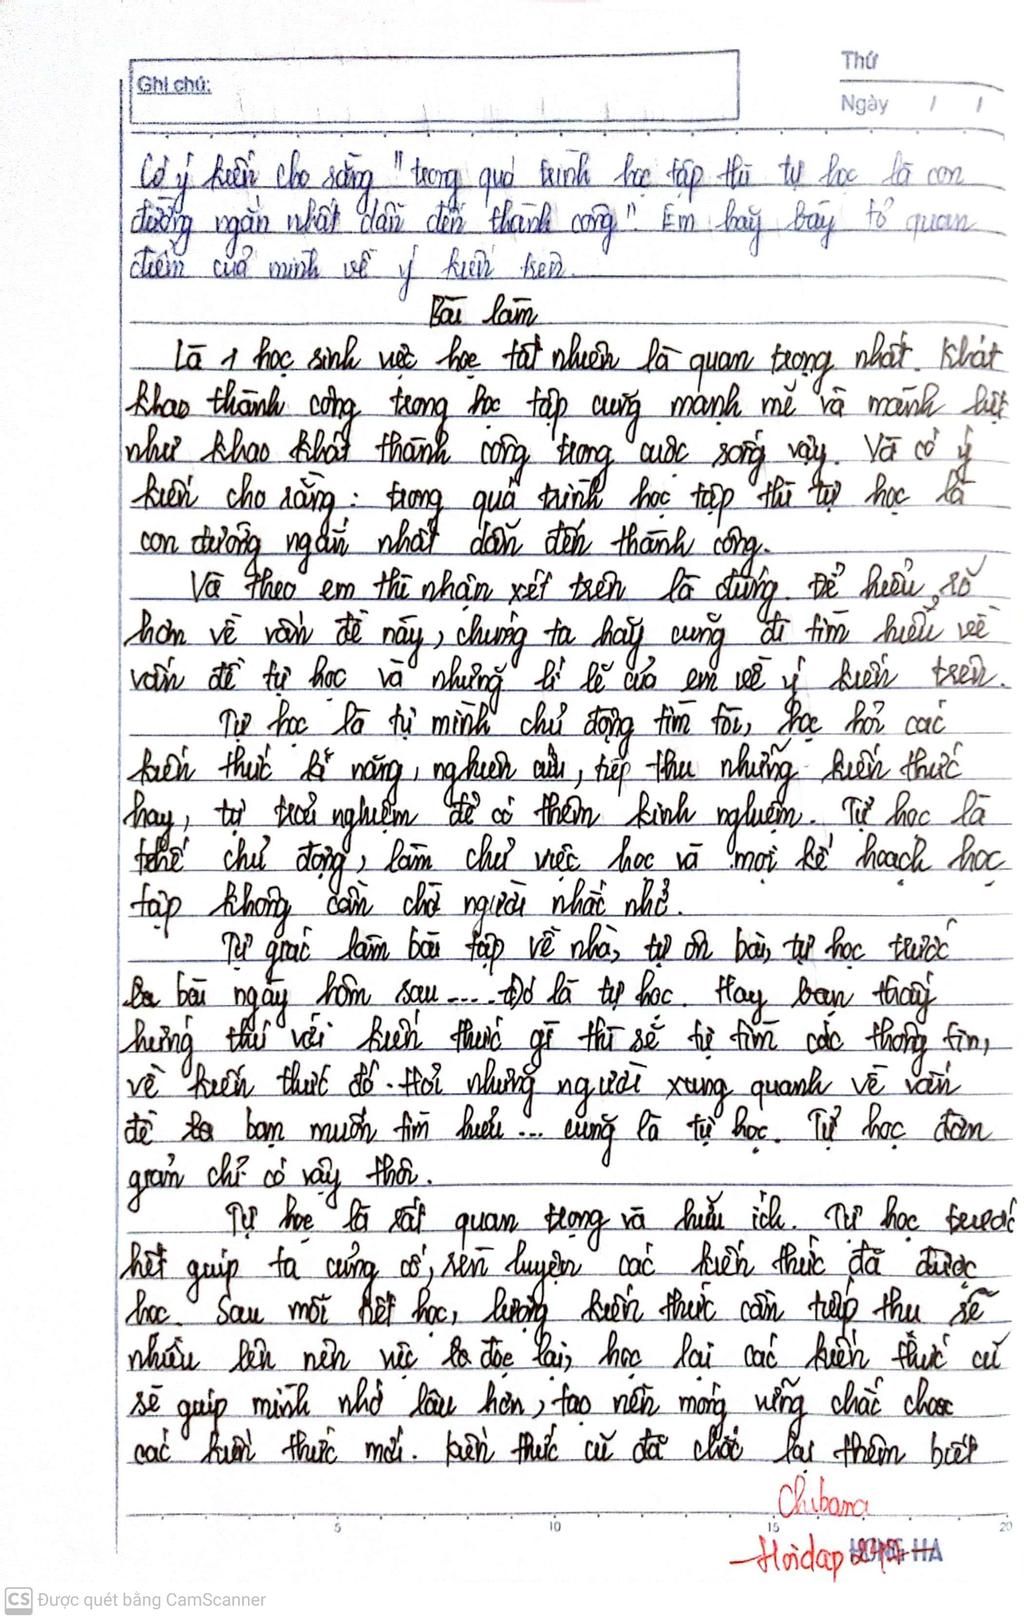 Ghi chú:
Thứ
Ngày / /
Có ý kiến cho rằng "trong quá trình học tập thì tự học là con
đường ngắn nhất dẫn đến thành công". Em hãy bày tỏ quan
điểm của mình về ý kiến trên.
Bài làm
Là 1 học sinh việc học tất nhiên là quan trọng nhất. Khát
khao thành công trong học tập cũng mạnh mẽ và mãnh liệt
như khao khát thành công trong cuộc sống vậy. Và có ý
kiến cho rằng: trong quá trình học tập thì tự học là
con đường ngắn nhất dẫn đến thành công.
Và theo em thì nhận xét trên là đúng. Để hiểu rõ
hơn về vấn đề này, chúng ta hãy cùng đi tìm hiểu về
vấn đề tự học và những lí lẽ của em về ý kiến trên.
Tự học là tự mình chủ động tìm tòi, học hỏi các
kiến thức kĩ năng, nghiên cứu, tiếp thu những kiến thức
hay, tự trải nghiệm để có thêm kinh nghiệm. Tự học là
thế chủ động, làm chủ việc học và mọi kế hoạch học
tập không cần chờ người nhắc nhở.
Tự giác làm bài tập về nhà, tự ôn bài, tự học trước
bài ngày hôm sau .... Đó là tự học. Hay bạn thấy
hứng thú với kiến thức gì thì sẽ tự tìm các thông tin,
về kiến thức đó. Hỏi những người xung quanh về vấn
đề bạn muốn tìm hiểu ... cũng là tự học. Tự học đơn
giản chỉ có vậy thôi.
Tự học là rất quan trọng và hữu ích. Tự học trước
hết giúp ta củng cố, rèn luyện các kiến thức đã được
học. Sau mỗi tiết học, lượng kiến thức cần tiếp thu sẽ
nhiều lên nên việc đọc lại, học lại các kiến thức cũ
sẽ giúp mình nhớ lâu hơn, tạo nên móng vững chắc cho
các kiến thức mới. Kiến thức cũ đã chắc lại thêm biết
Chibana
5 10 15 20
Hoidap247
HONG HA
CS Được quét bằng CamScanner